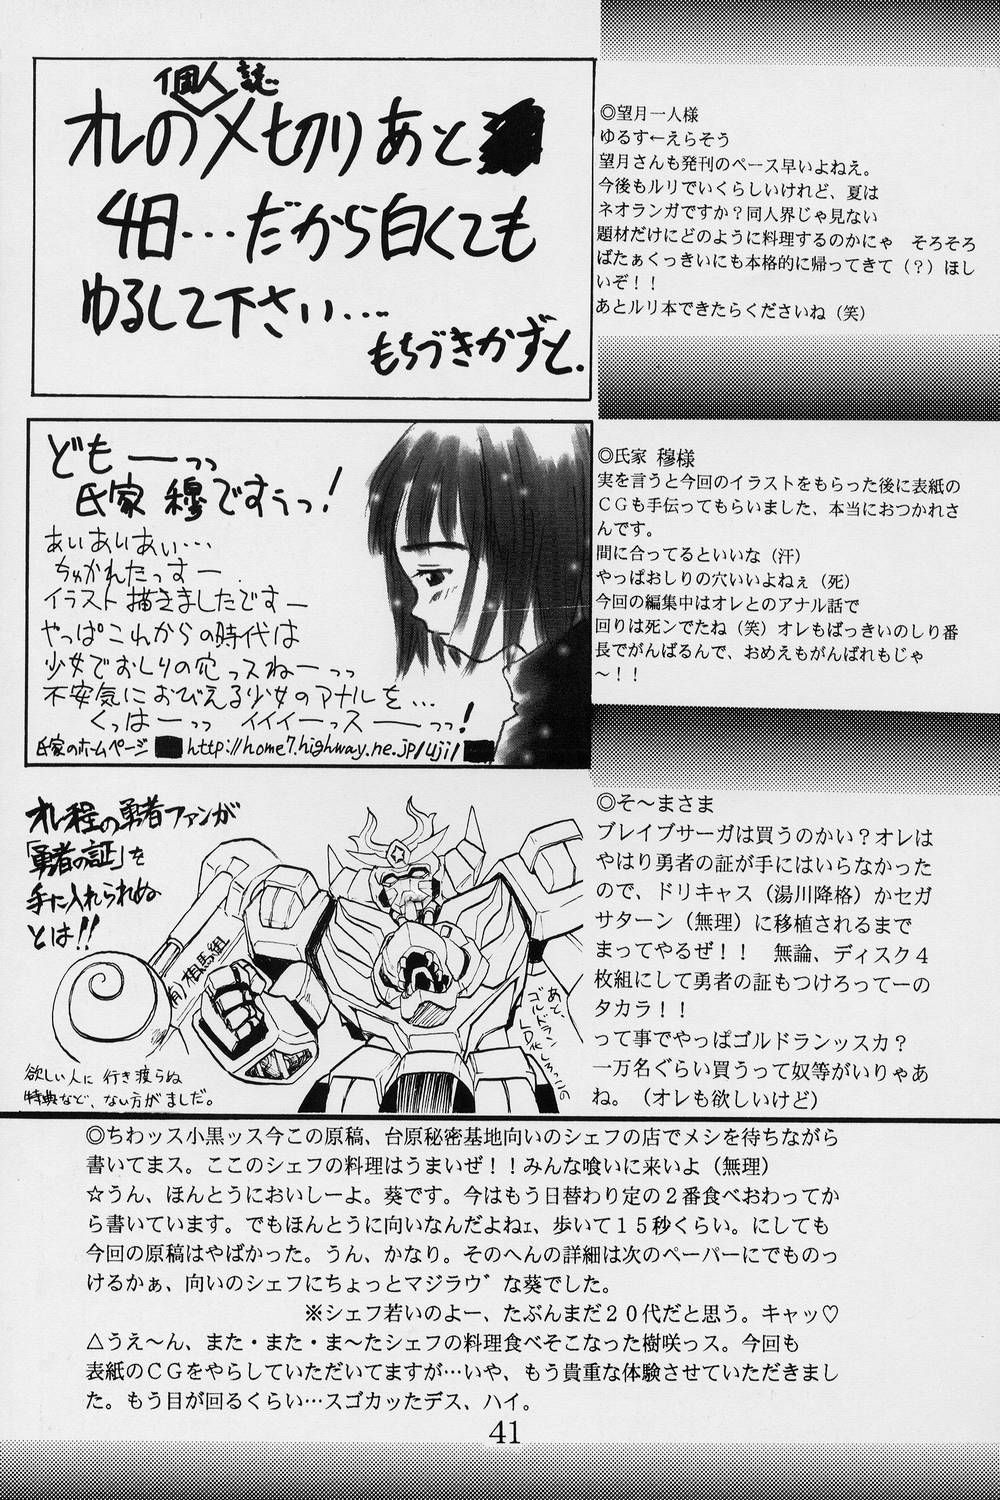 個人誌
オレの〆切りあと
4日…だから白くても
ゆるして下さい…
もちづきかずと.
◎望月一人様
ゆるす←えらそう
望月さんも発刊のペース早いよねえ。
今後もルリでいくらしいけれど、夏は
ネオランガですか？同人界じゃ見ない
題材だけにどのように料理するのかにゃ　そろそろ
ばたぁくっきいにも本格的に帰ってきて（？）ほし
いぞ！！
あとルリ本できたらくださいね（笑）
どもーっっ
氏家 穆ですぅっ！
あぃあぃあぃ…
ちゅかれたっすー
イラスト描きましたですー
やっぱこれからの時代は
少女でおしりの穴っスねーっっ
不安気におびえる少女のアナルを…
くっはーっっ　イイイーっスーーっっ！
氏家のホームページ http://home7.highway.ne.jp/uji/
◎氏家 穆様
実を言うと今回のイラストをもらった後に表紙の
ＣＧも手伝ってもらいました、本当におつかれさ
んです。
間に合ってるといいな（汗）
やっぱおしりの穴いいよねぇ（死）
今回の編集中はオレとのアナル話で
回りは死ンでたね（笑）オレもばっきいのしり番
長でがんばるんで、おめえもがんばれもじゃ
～！！
オレ程の勇者ファンが
「勇者の証」を
手に入れられぬ
とは!!
(有)相馬組
あと、
ゴルドラン
LD化しろ
欲しい人に行き渡らぬ
特典など、ない方がましだ。
◎そ～まさま
ブレイブサーガは買うのかい？オレは
やはり勇者の証が手にはいらなかった
ので、ドリキャス（湯川降格）かセガ
サターン（無理）に移植されるまで
まってやるぜ！！　無論、ディスク４
枚組にして勇者の証もつけろってーの
タカラ！！
って事でやっぱゴルドランッスカ？
一万名ぐらい買うって奴等がいりゃあ
ね。（オレも欲しいけど）
◎ちわッス小黒ッス今この原稿、台原秘密基地向いのシェフの店でメシを待ちながら
書いてまス。ここのシェフの料理はうまいぜ！！みんな喰いに来いよ（無理）
☆うん、ほんとうにおいしーよ。葵です。今はもう日替わり定の２番食べおわってか
ら書いています。でもほんとうに向いなんだよねェ、歩いて１５秒くらい。にしても
今回の原稿はやばかった。うん、かなり。そのへんの詳細は次のペーパーにでものっ
けるかぁ、向いのシェフにちょっとマジラヴ゛な葵でした。
※シェフ若いのよー、たぶんまだ２０代だと思う。キャッ♡
△うえ～ん、また・また・ま～たシェフの料理食べそこなった樹咲っス。今回も
表紙のＣＧをやらしていただいてますが…いや、もう貴重な体験させていただきまし
た。もう目が回るくらい…スゴカッたデス、ハイ。
41